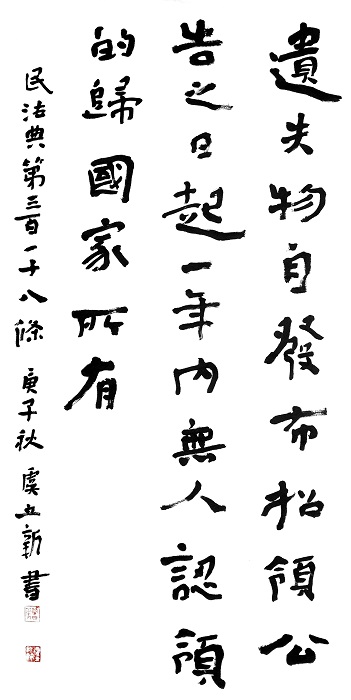 遺失物自發布招領公
告之日起一年內無人認領
的歸國家所有
民法典第三百一十八條 庚子秋 虞立新書